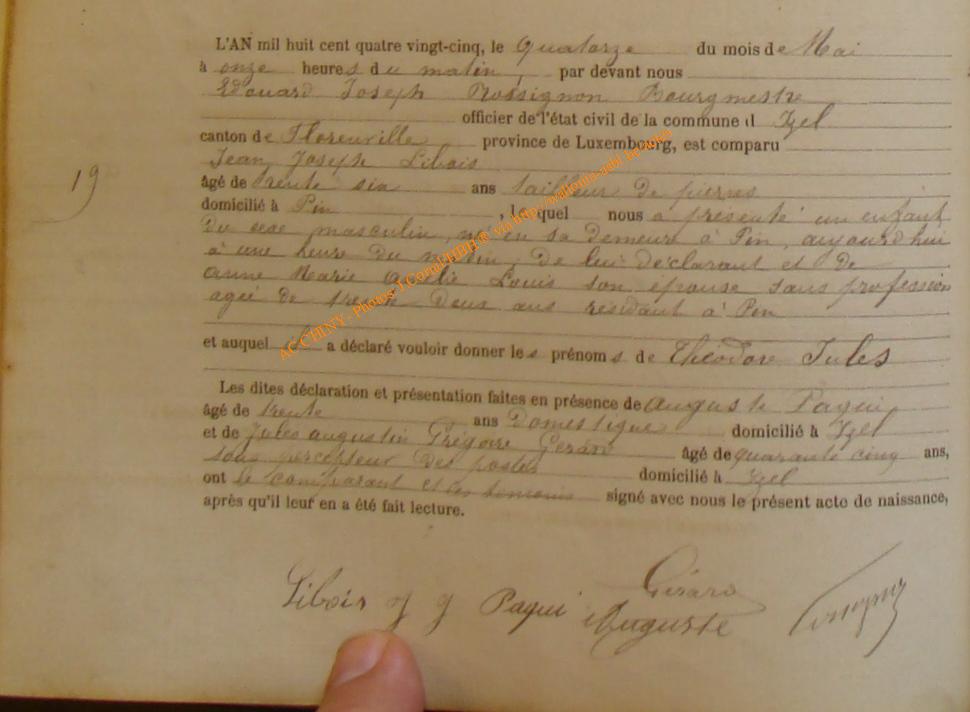 L'AN mil huit cent quatre vingt-cinq, le Quatorze du mois de Mai
à onze heures du matin, par devant nous
Edouard Joseph Rossignon Bourgmestre
officier de l'état civil de la commune d Izel
canton de Florenville province de Luxembourg, est comparu
Jean Joseph Libois
19
âgé de trente six ans tailleur de pierres
domicilié à Pin, lequel nous a présenté un enfant
du sexe masculin, né en sa demeure à Pin, aujourd'hui
à une heure du matin, de lui déclarant et de
Anne Marie Amélie Louis son épouse sans profession
agée de trente deux ans résidant à Pin
et auquel il a déclaré vouloir donner les prénoms de Théodore Jules
Les dites déclaration et présentation faites en présence de Auguste Paqui
âgé de trente ans Domestique domicilié à Izel
et de Jules Augustin Grégoire Gérard âgé de quarante cinq ans,
sous percepteur des postes domicilié à Izel
ont le comparant et les témoins signé avec nous le présent acte de naissance,
après qu'il leur en a été fait lecture.
Libois J J Paqui Auguste Gérard
AC CHINY - Photos J.Cornil HBH® via http://wallonia-asbl.be